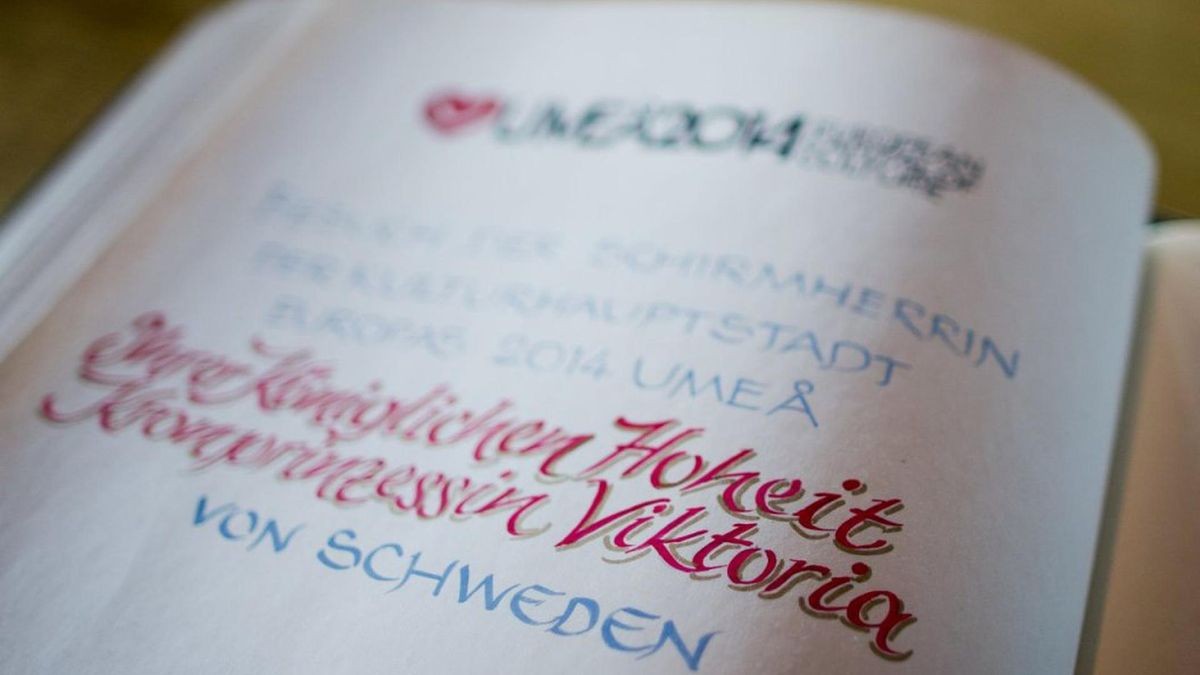 UMEÅ2014 EUROPEAN
CAPITAL OF
CULTURE
BESUCH DER SCHIRMHERRIN
DER KULTURHAUPTSTADT
EUROPAS 2014 UMEÅ
Ihrer Königlichen Hoheit
Kronprinzessin Viktoria
VON SCHWEDEN